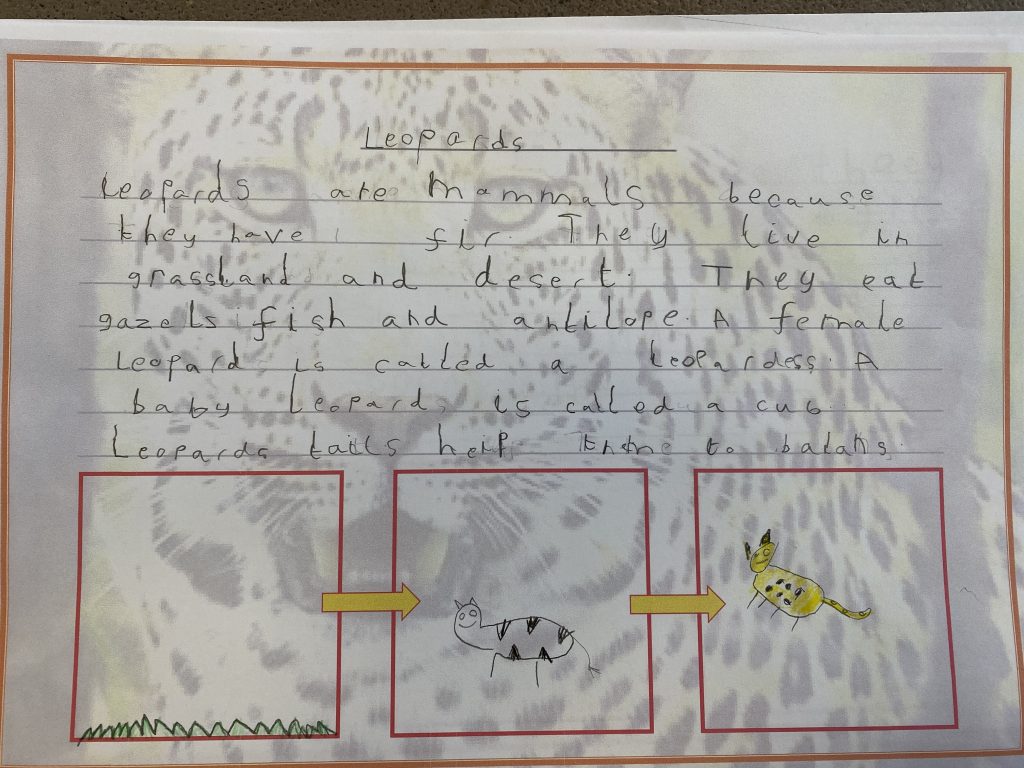 Leopards
Leopards are mammals because
they have fir. They live in
grassland and desert. They eat
gazels fish and antilope. A female
leopard is called a leopardess. A
baby leopard is called a cub.
Leopards tails help to balans.